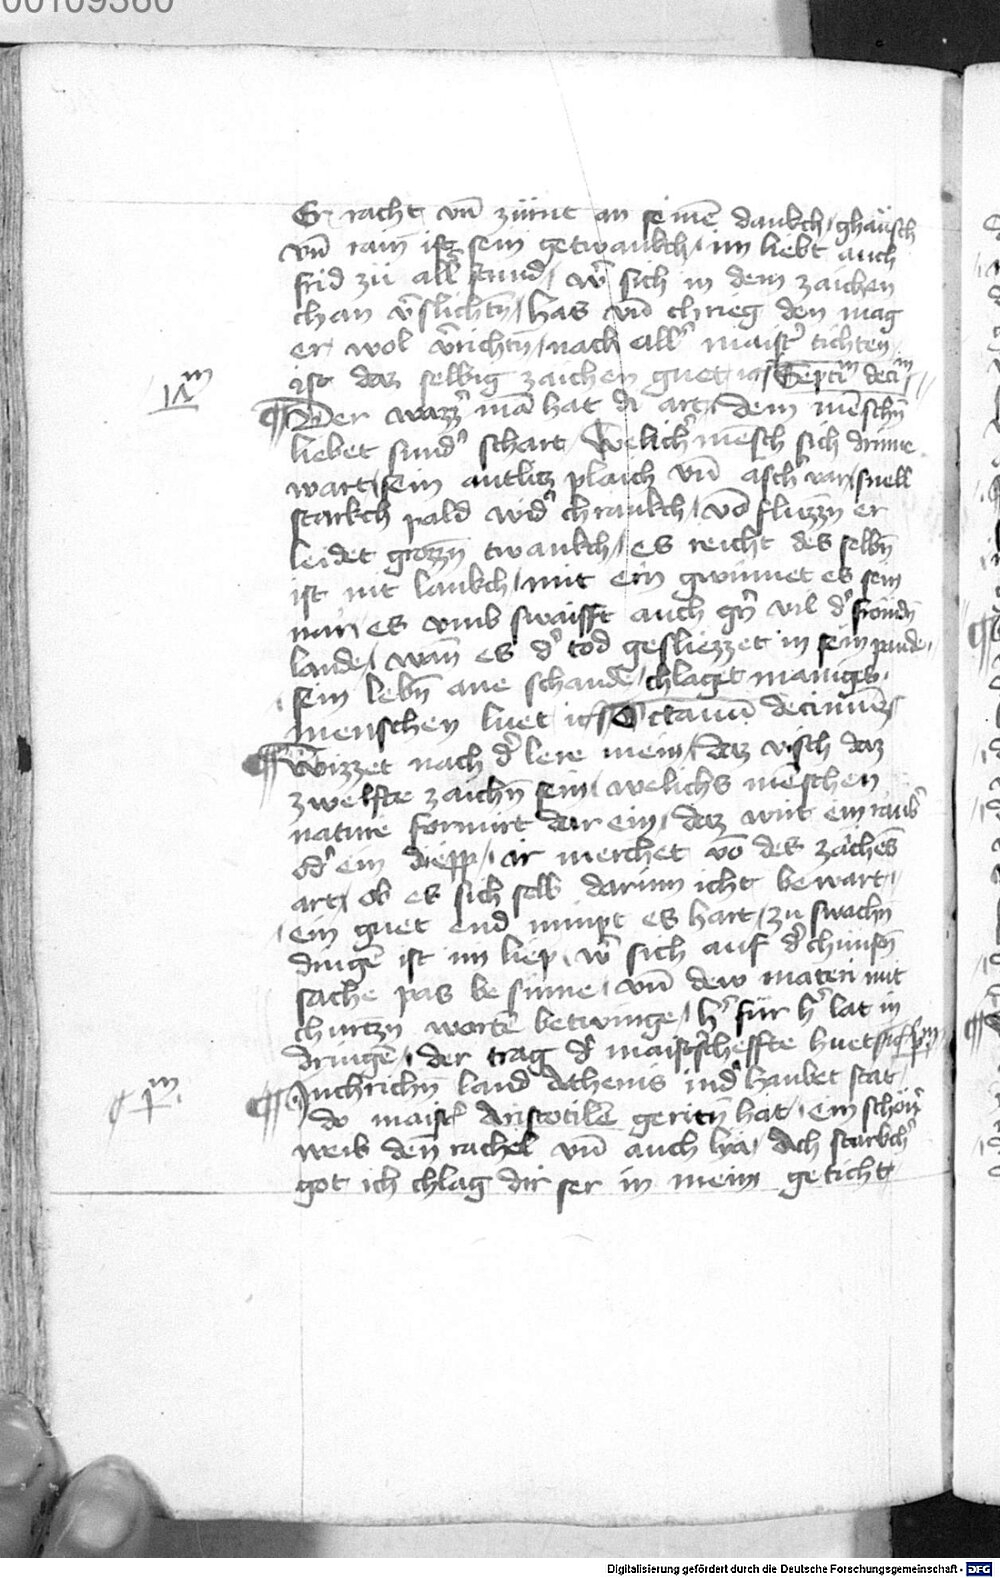 00109380
Er racht vn̄ zürnt an seinē dankch / ghäusch
vn̄ rain ist sein getwankch / im liebt auch
frid zü all' stund / w' sich in dem zaichen
chan v'slichtn̄ / has vn̄ chrieg den mag
er wol v'richtn̄ / nach all' maist' tichten
ist daz selbig zaichen guet
Der wazz' mā hat di art / dem menschn̄
liebet sund' schart / Welich' mensch sich drinne
wart / sein antlitz plaich vn̄ asch' var / snell
starkch pald wid' chrankch / vō fluzzn̄ er
leidet grozzn̄ twankch / es reicht des selbn̄
ist nit lankch / mit ein gwinnet es sein
nar / es vmb swaifft auch gn̄ vil d' frömdn̄
lande / wan̄ es d' tod gesliezzet in sein pande /
sein lebn̄ ane schande / chlaget maniges
menschen luet Octauū decimū
Wizzet nach d' lere mein / daz visch daz
zwelfte zaichn̄ sein / welichs menschen
nature formirt dar ein / daz wirt ein raub'
od' ein diepp / ir merchet vō des zaichēs
art / ob es sich selb darinn icht bewart /
ein guet end nimpt es hart / zu swachn
dingē ist im liep / w' sich auf d' chunsn̄
sache pas besinne / vn̄ dew materi mit
churtzn̄ wortē betwinge / h' für h' lat in
dringē / der trag d' maist'scheffte huet
In chrichn̄ land Athenis ind' haubet stat
do maist' Aristotile geritn̄ hat / ein schön'
weib den̄ rachel vn̄ auch lya / Ach starkch'
got ich chlag dir ser in meim geticht
Digitalisierung gefördert durch die Deutsche Forschungsgemeinschaft - DFG